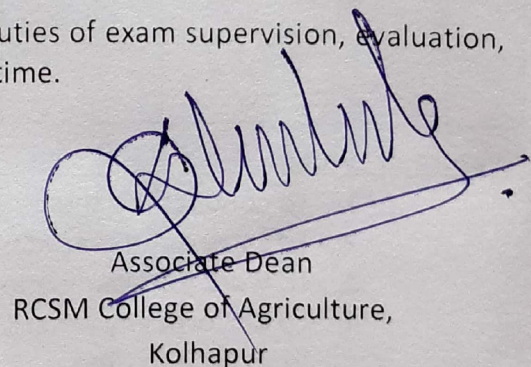 uties of exam supervision, evaluation,
time.
Associate Dean
RCSM College of Agriculture,
Kolhapur